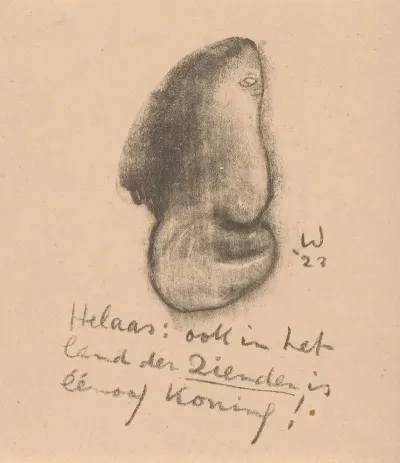 W
'23
Helaas: ook in het
land der Zienden is
éénoog Koning!